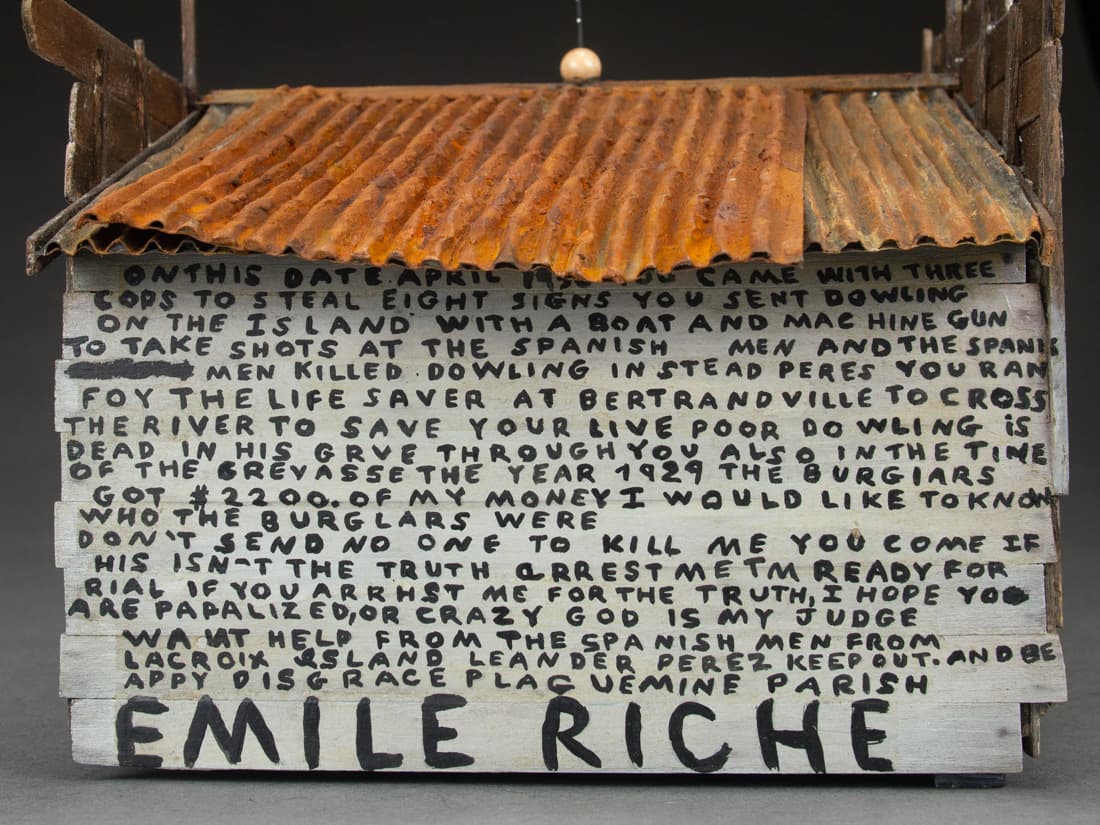 ON THIS DATE APRIL CAME WITH THREE
COPS TO STEAL EIGHT SIGNS YOU SENT DOWLING
ON THE ISLAND WITH A BOAT AND MACHINE GUN
TO TAKE SHOTS AT THE SPANISH MEN AND THE SPANIS
MEN KILLED DOWLING INSTEAD PERES YOU RAN
FOY THE LIFE SAVER AT BERTRANDVILLE TO CROSS
THE RIVER TO SAVE YOUR LIVE POOR DOWLING IS
DEAD IN HIS GRVE THROUGH YOU ALSO IN THE TIME
OF THE CREVASSE THE YEAR 1929 THE BURGIARS
GOT $2200. OF MY MONEY I WOULD LIKE TO KNOW
WHO THE BURGLARS WERE
DON'T SEND NO ONE TO KILL ME YOU COME IF
HIS ISN'T THE TRUTH ARREST ME I'M READY FOR
RIAL IF YOU ARRHST ME FOR THE TRUTH, I HOPE YOU
ARE PAPALIZED, OR CRAZY GOD IS MY JUDGE
WANT HELP FROM THE SPANISH MEN FROM
LACROIX ISLAND LEANDER PEREZ KEEP OUT. AND BE
APPY DISGRACE PLAGUEMINE PARISH
EMILE RICHE